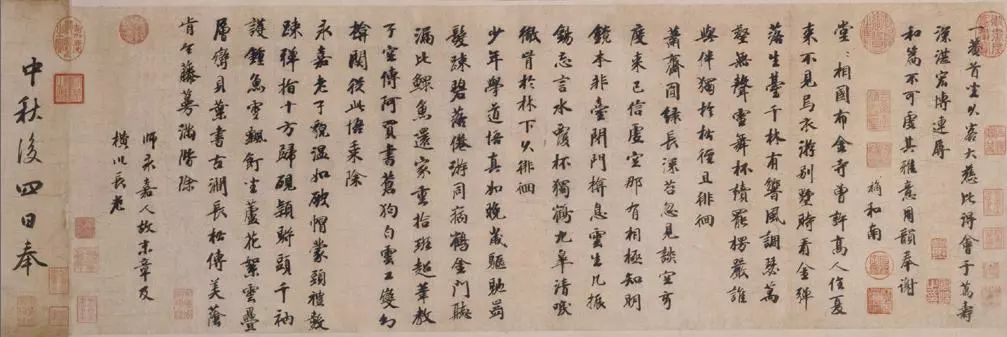 一庵首坐以寄大慈比得會于萬壽
深湛宏博連辱
和篇不可虛其雅意用韻奉謝
和南
堂〻相國布金寺曾許高人住夏
來不見烏衣游別墅時看金彈
落生臺千林有聲風調瑟萬
壑無聲雪舞杯積罷楞嚴誰
與伴獨於松徑且徘徊
蕭齋圓綠長深苔忽見談空可
度來已信虛空那有相極知明
鏡本非臺閉門偃息雲生几振
錫忘言水杯獨鶴九皋清唳
徹於林下久徘徊
少年學道悟真如晚歲驅馳兩
髮疎碧落僊游同病鶴金門聽
漏比鰥魚還家重拾班超筆教
子空傳阿買書蒼狗白雲工變幻
掩關從此悟乘除
永嘉老子貌溫如破帽蒙頭禮數
疎彈指十方歸硯頴駢頭千衲
護鐘魚雪飄坐蘆花絮雲疊
層巒貝葉書古澗長松傳美蔭
肯令藤蔓滿階除
師永嘉人故末章及
橫山長老
中秋後四日奉